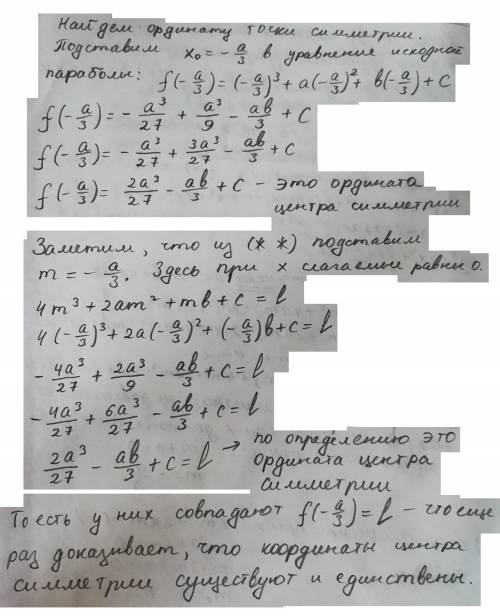 Найдем ординату точки симметрии.
Подставим x₀ = -a/3 в уравнение исходной
параболы: f(-a/3) = (-a/3)³ + a(-a/3)² + b(-a/3) + C
f(-a/3) = -a³/27 + a³/9 - ab/3 + C
f(-a/3) = -a³/27 + 3a³/27 - ab/3 + C
f(-a/3) = 2a³/27 - ab/3 + C - это ордината
центра симметрии
Заметим, что из (**) подставим
m = -a/3. Здесь при x слагаемые равны 0.
4m³ + 2am² + mb + c = l
4(-a/3)³ + 2a(-a/3)² + (-a/3)b + c = l
-4a³/27 + 2a³/9 - ab/3 + c = l
-4a³/27 + 6a³/27 - ab/3 + c = l
2a³/27 - ab/3 + c = l → по определению это
ордината центра
симметрии
То есть у них совпадают f(-a/3) = l - что еще
раз доказывает, что координаты центра
симметрии существуют и единственны.